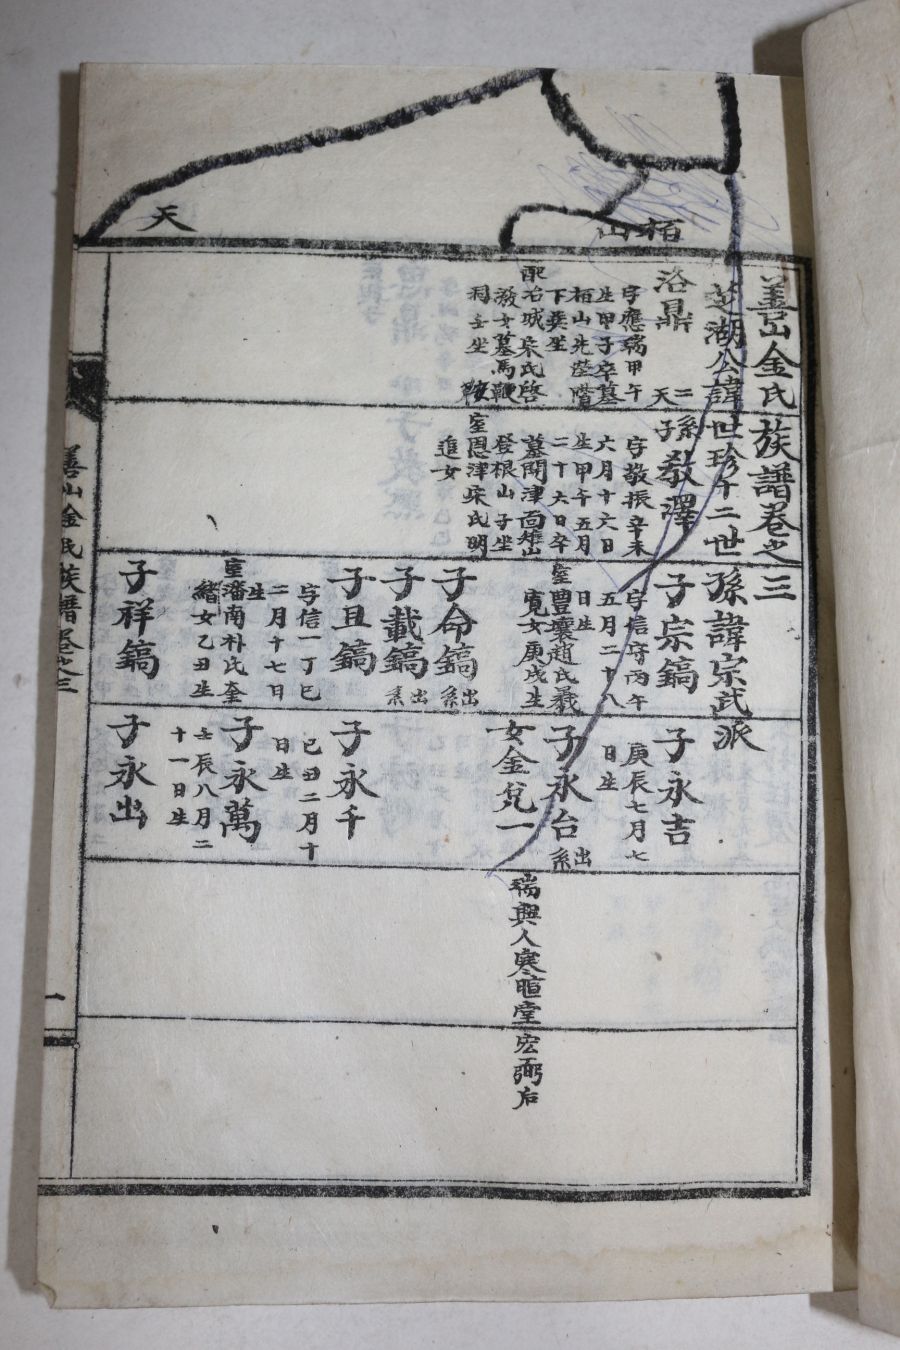 栢山
天
善山金氏族譜卷之三
芝湖公諱世珍十二世孫諱宗武派
洛鼎
二天
字應瑞甲午
生甲子卒墓
栢山先塋階
下癸坐
配冶城宋氏啓
發女墓馬鞭
洞壬坐
子孫敎澤
字敬振辛未
六月十六日
生甲午五月
二十六日卒
墓開津面
登根山子坐
室恩津宋氏明
進女
子宗鎬
字信守丙午
五月二十八
日生
室豊壤趙氏羲
寬女庚戌生
子命鎬
出系
子載鎬
出系
子且鎬
字信一丁巳
二月十七日
生
室潘南朴氏奎
緖女乙丑生
子祥鎬
子永吉
庚辰七月七
日生
子永台
出系
女金兌一
瑞興人寒暄堂宏弼后
子永千
己丑二月十
日生
子永萬
壬辰八月二
十一日生
子永出
善山金氏族譜卷之三
一